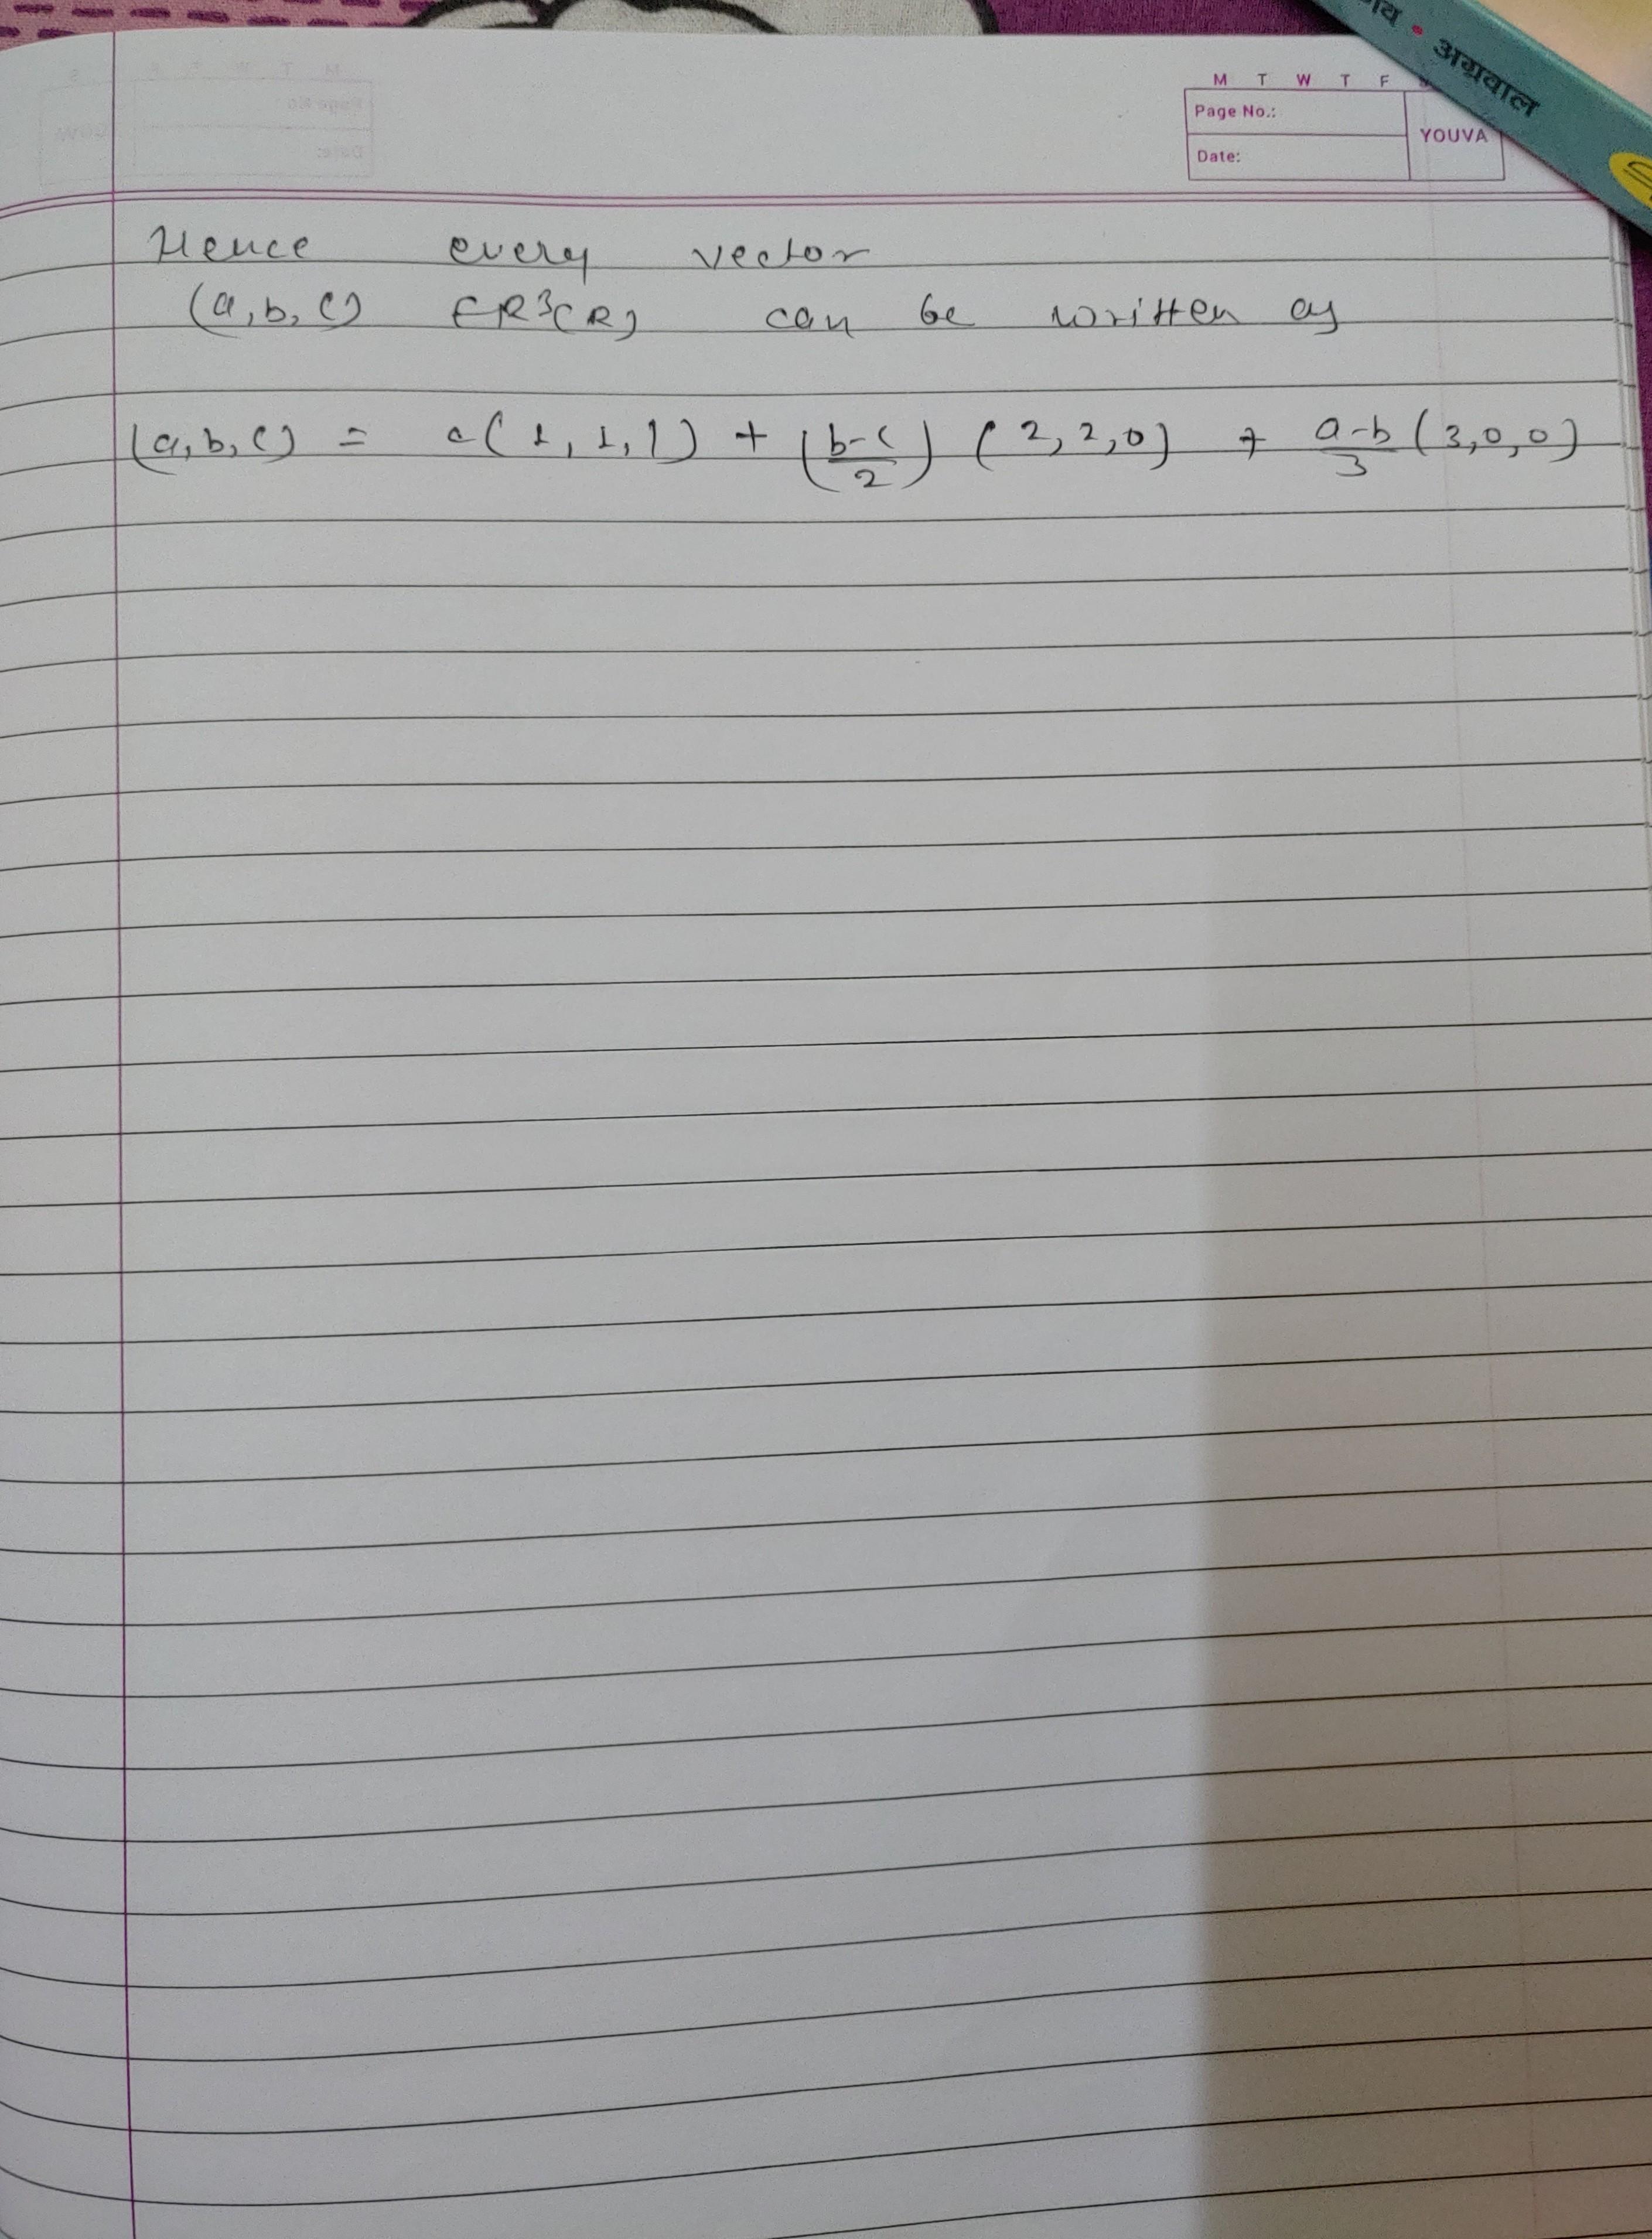 अग्रवाल
M T W T F
Page No.:
YOUVA
Date:
Hence every vector
(a, b, c) ∈ R³(R) can be written as
(a, b, c) = c(1, 1, 1) + (b-c/2) (2, 2, 0) + a-b/3 (3, 0, 0)